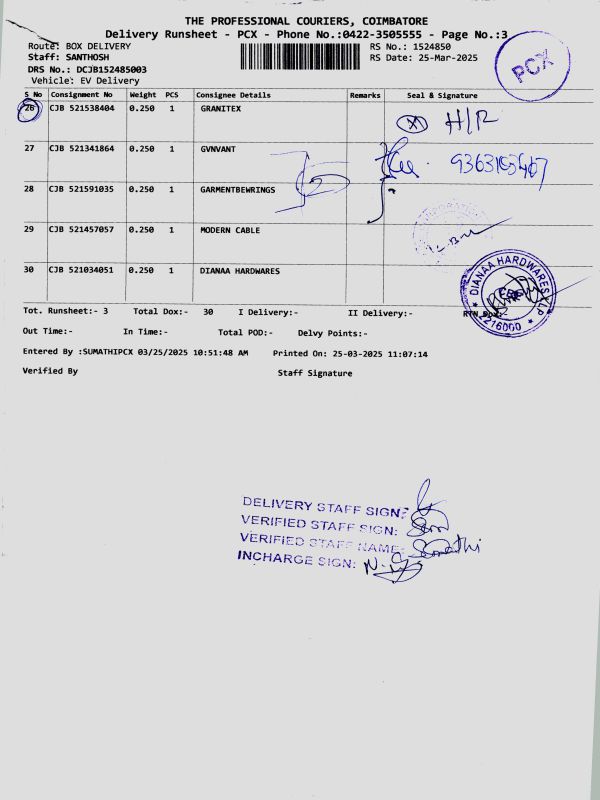 THE PROFESSIONAL COURIERS, COIMBATORE
Delivery Runsheet - PCX - Phone No.:0422-3505555 - Page No.:3
Route: BOX DELIVERY
RS No.: 1524850
Staff: SANTHOSH
RS Date: 25-Mar-2025
DRS No.: DCJB152485003
Vehicle: EV Delivery
PCX
S No Consignment No Weight PCS Consignee Details Remarks Seal & Signature
26 CJB 521538404 0.250 1 GRANITEX
H/R
27 CJB 521341864 0.250 1 GVNVANT
28 CJB 521591035 0.250 1 GARMENTBEWRINGS
29 CJB 521457057 0.250 1 MODERN CABLE
30 CJB 521034051 0.250 1 DIANAA HARDWARES
DIANAA HARDWARES
Tot. Runsheet:- 3 Total Dox:- 30 I Delivery:- II Delivery:-
Out Time:- In Time:- Total POD:- Delvy Points:-
Entered By :SUMATHIPCX 03/25/2025 10:51:48 AM Printed On: 25-03-2025 11:07:14
Verified By Staff Signature
DELIVERY STAFF SIGN:
VERIFIED STAFF SIGN:
VERIFIED STAFF NAME: Sumathi
INCHARGE SIGN: